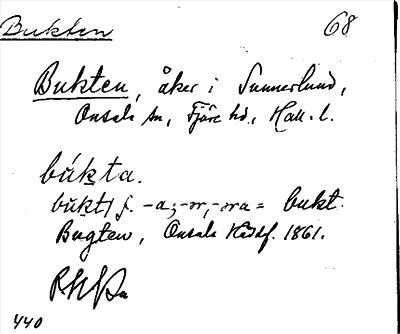 Bukten
68
Bukten, åker i Sunnerlund,
Onsala sn, Fjäre hd., Hall. l.
búkta.
bukt f. -a; -er, -era = bukt.
Bugten, Onsala 1861.
440